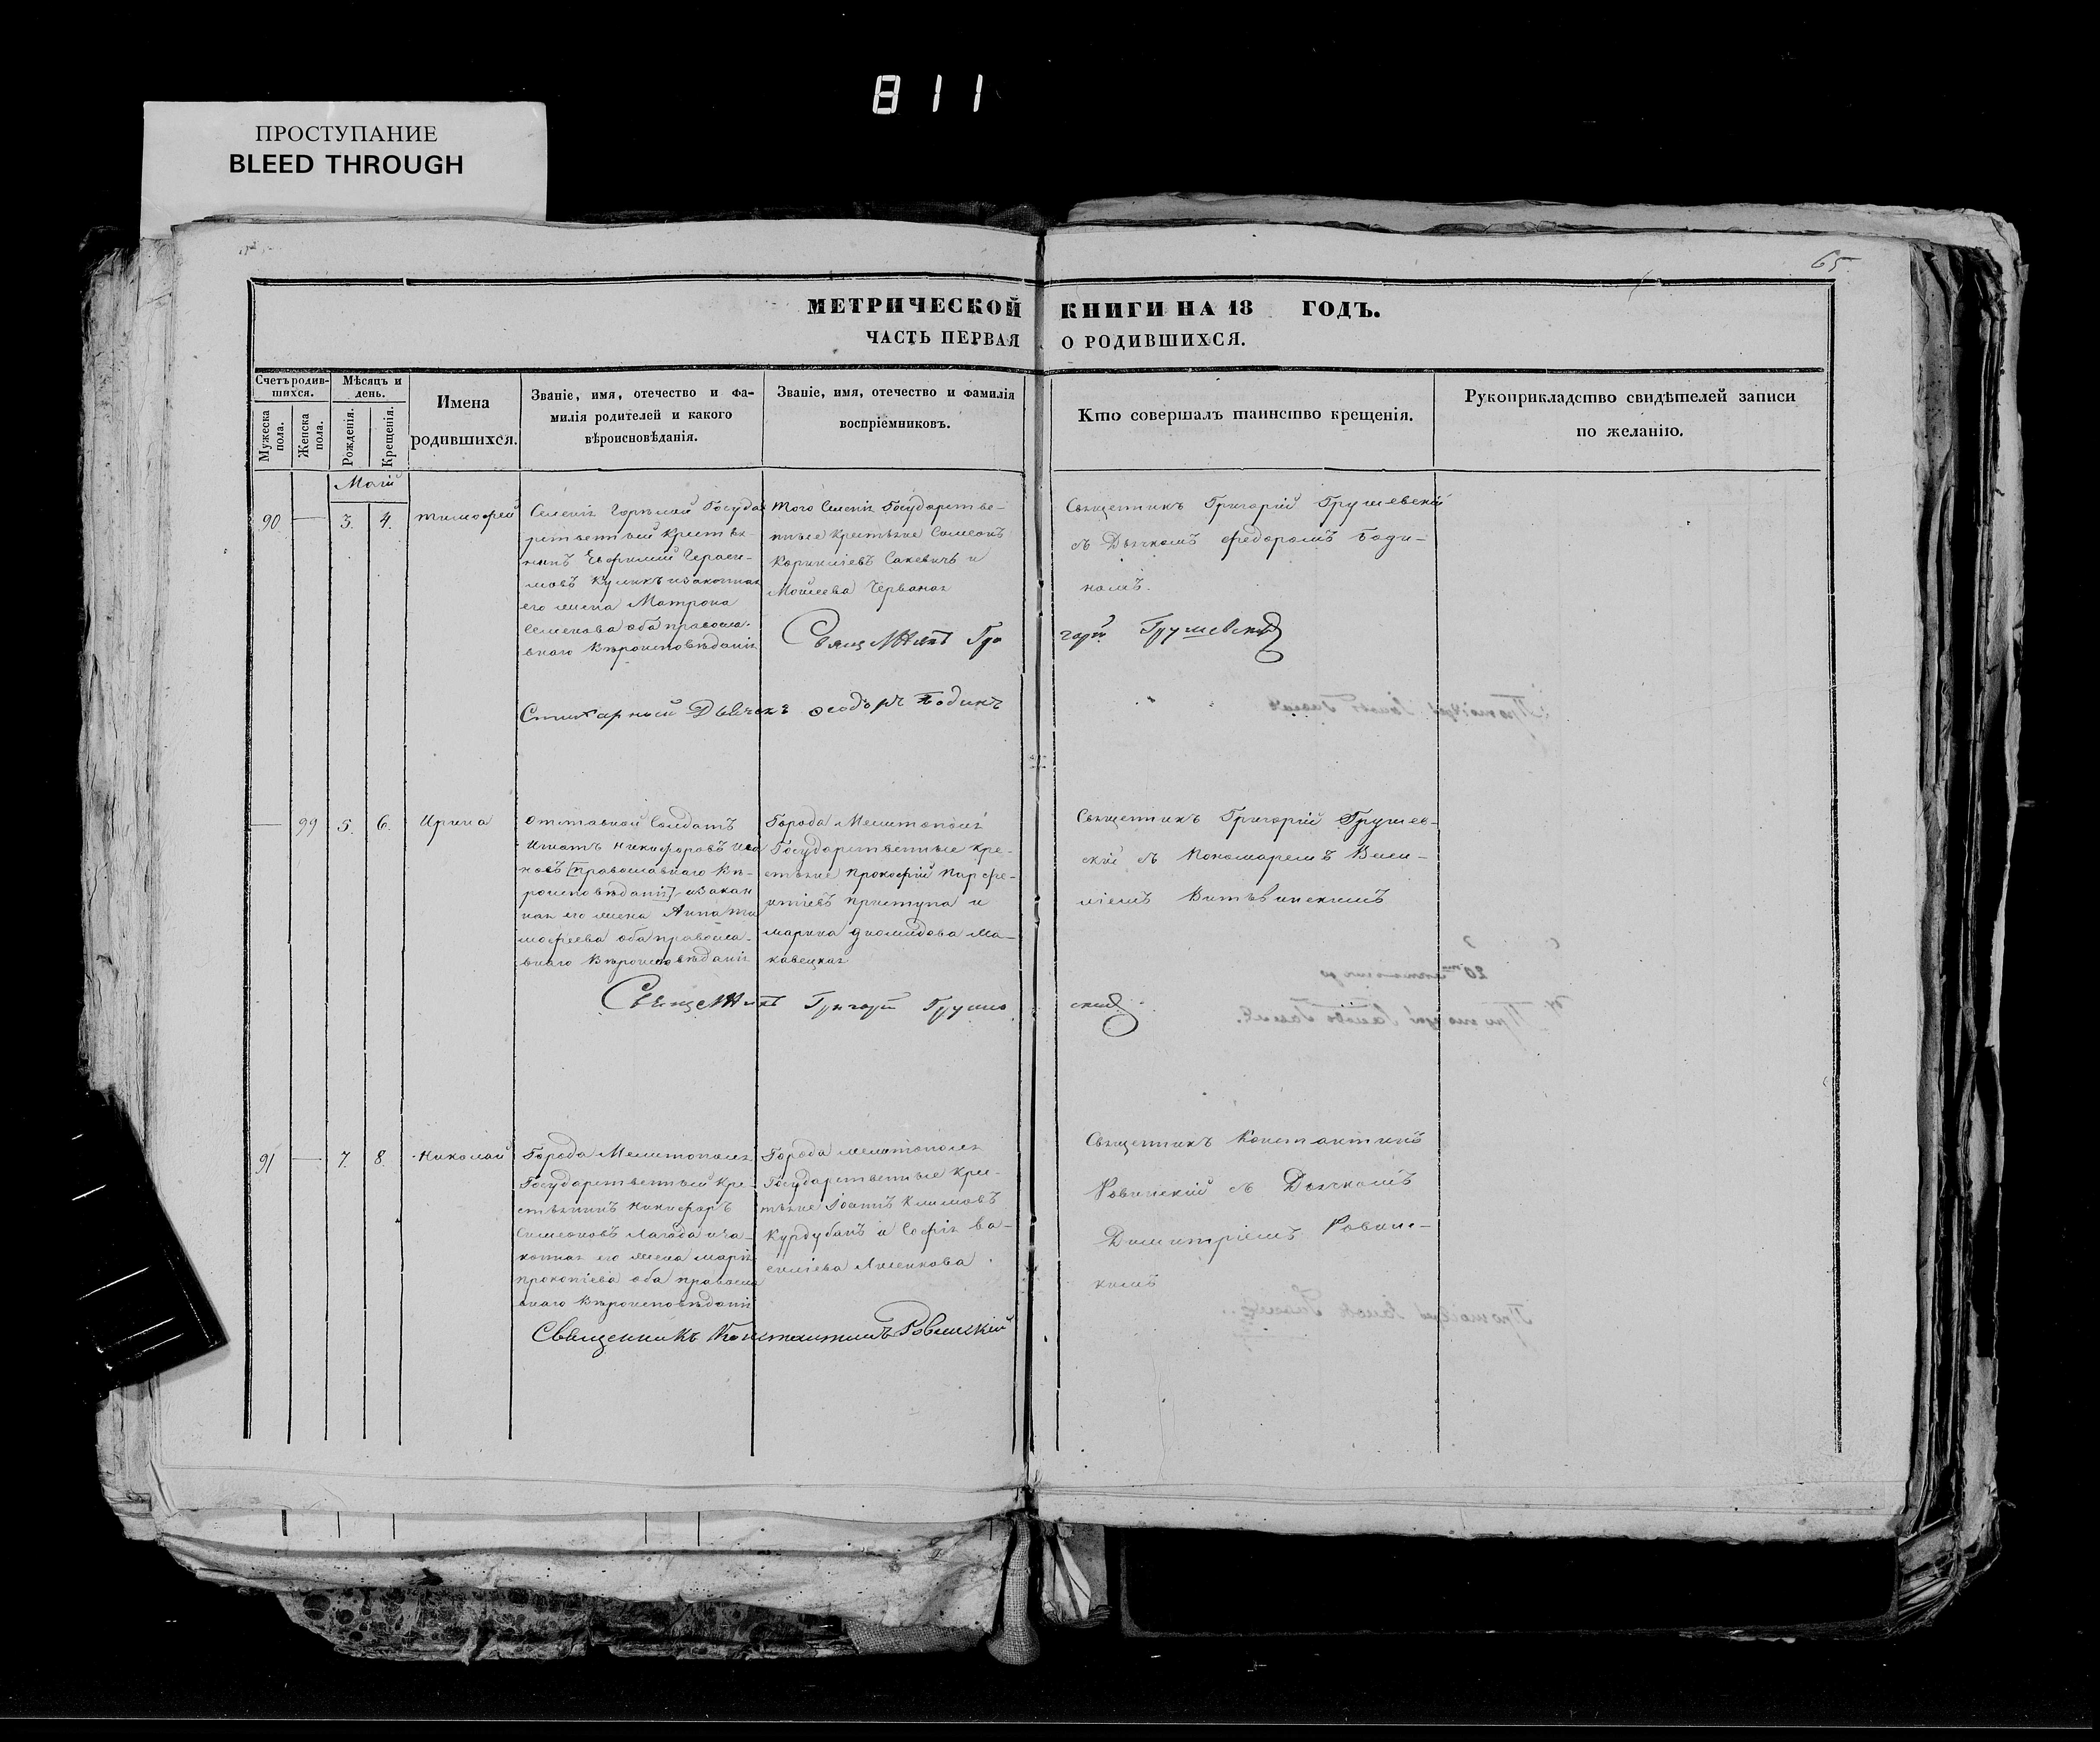 811
ПРОСТУПАНИЕ
BLEED THROUGH
65
МЕТРИЧЕСКОЙ КНИГИ НА 18 ГОДЪ.
ЧАСТЬ ПЕРВАЯ О РОДИВШИХСЯ.
Счетъ родив-
шихся.
Мужеска пола.
Женска пола.
Мѣсяцъ и
день.
Рожденія.
Крещенія.
Имена
родившихся.
Званіе, имя, отечество и фа-
милія родителей и какого
вѣроисновѣданія.
Званіе, имя, отечество и фамилія
воспріемниковъ.
Кто совершалъ таинство крещенія.
Рукоприкладство свидѣтелей записи
по желанію.
Маій
90 — 3. 4. Тимофей
Селенія Горѣлой Государ
рственный крестья-
нинъ Евфимій Гераси-
мовъ Куликъ и законная
его жена Матрона
Семенова оба правосла-
внаго Вѣроисповѣданія
Того Селенія Государстве-
нные крестьяне Симеонъ
Корниліевъ Сакевичъ и
Моисеева Червоная
Священникъ Григорій Грушевскій
съ Дьячкомъ Федоромъ Боди-
номъ.
Священникъ Григорій Грушевскій
Стихарный Дьячекъ Феодоръ Бодинъ
— 99 5. 6. Ирина
Отставной Солдатъ
Игнатъ Никифоровъ Ива
новъ [православнаго Вѣ-
роисповѣданія] и Закон
ная его жена Анна Ти
мофеева оба правосла-
внаго Вѣроисповѣданія
Города Мелитополя
Государственные кре-
стьяне Прокофій Парфе-
нтіевъ Приступа и
Марина Диомидова Ма-
кавецкая
Священникъ Григорій Грушев-
скій съ Пономаремъ Васи-
ліемъ
Священникъ Григорій Грушевскій
91 — 7. 8. Николай
Города Мелитополя
Государственный Кре-
стьянинъ Никифоръ
Симеоновъ Лагода и за-
конная его жена Марія
Прокопіева оба правосла
внаго Вѣроисповѣданія
Города Мелитополя
Государственные кре-
стьяне Іоаннъ Климовъ
Курдубанъ и Софія Ва-
силіева Лисенкова.
Священникъ Константинъ
Ровинскій съ Дьячкомъ
Димитріемъ Ровинс-
кимъ
Священникъ Константинъ Ровинскій